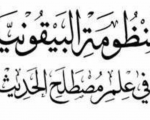 نظومة البيقونية
في علم مصطلح الحديث